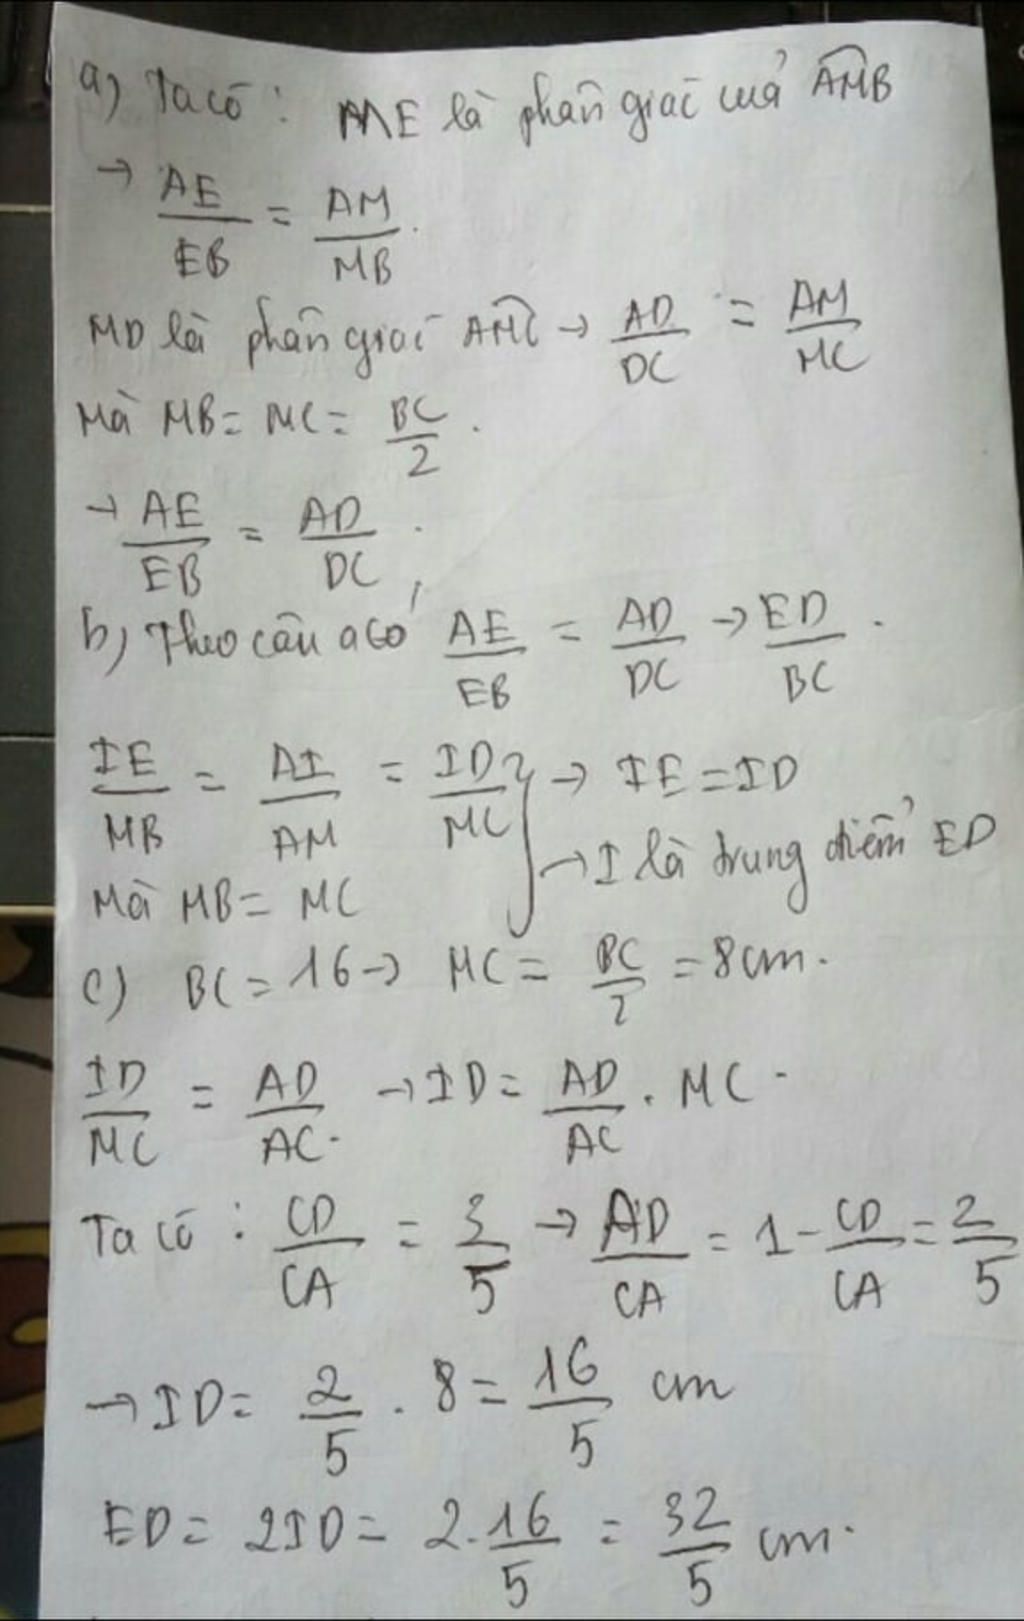 a) Ta có : ME là phân giác của AMB
→ AE/EB = AM/MB.
MD là phân giác AMC → AD/DC = AM/MC
Mà MB = MC = BC/2.
→ AE/EB = AD/DC.
b) Theo câu a có AE/EB = AD/DC → ED/BC.
IE/MB = AI/AM = ID/MC } → IE = ID
Mà MB = MC → I là trung điểm ED
c) BC = 16 → MC = BC/2 = 8cm.
ID/MC = AD/AC. → ID = AD/AC . MC.
Ta có : CD/CA = 3/5 → AD/CA = 1 - CD/CA = 2/5
→ ID = 2/5 . 8 = 16/5 cm
ED = 2ID = 2.16/5 = 32/5 cm.